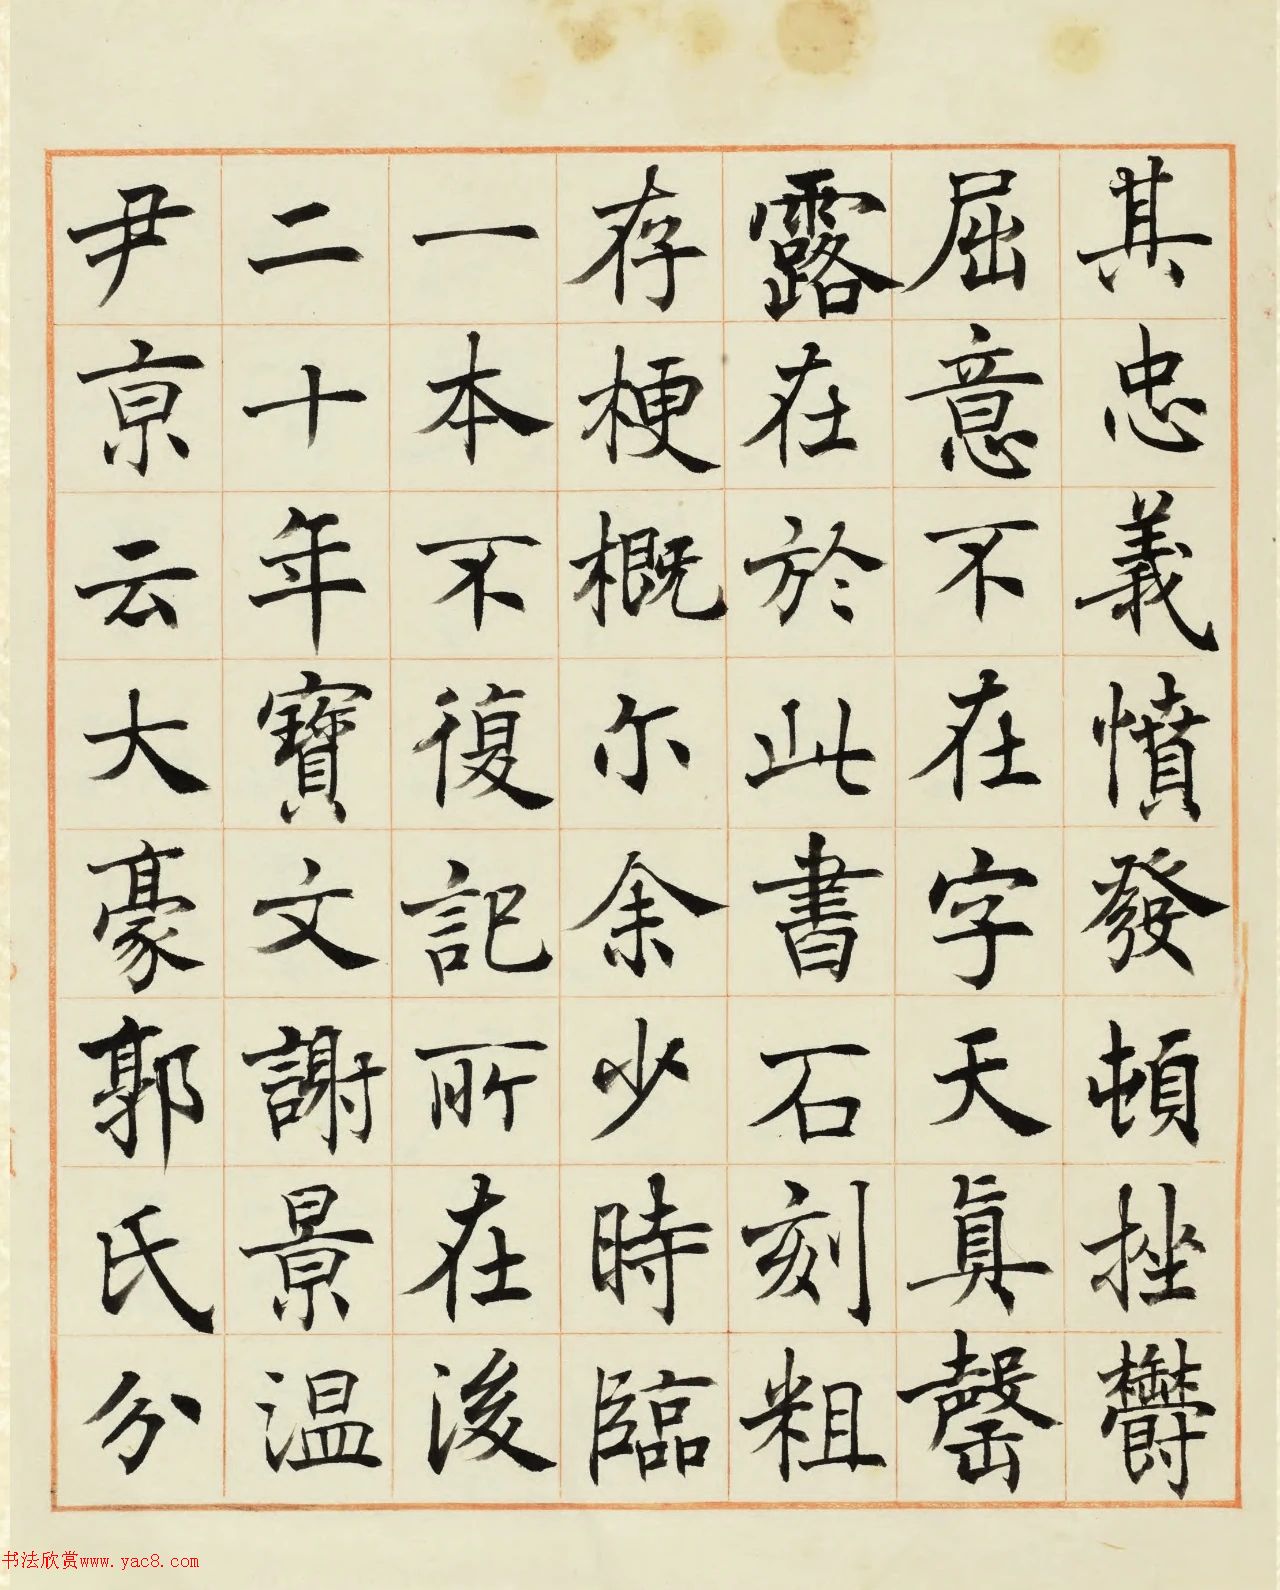 其忠義憤發頓挫鬱
屈意不在字天真罄
露在於此書石刻粗
存梗概尒余少時臨
一本不復記所在後
二十年寶文謝景温
尹亰云大豪郭氏分
书法欣赏www.yac8.com